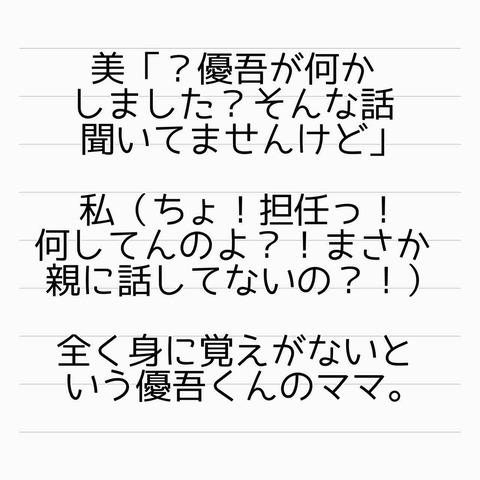 美「？優吾が何か
しました？そんな話
聞いてませんけど」
私（ちょ！担任っ！
何してんのよ？！まさか
親に話してないの？！）
全く身に覚えがないと
いう優吾くんのママ。